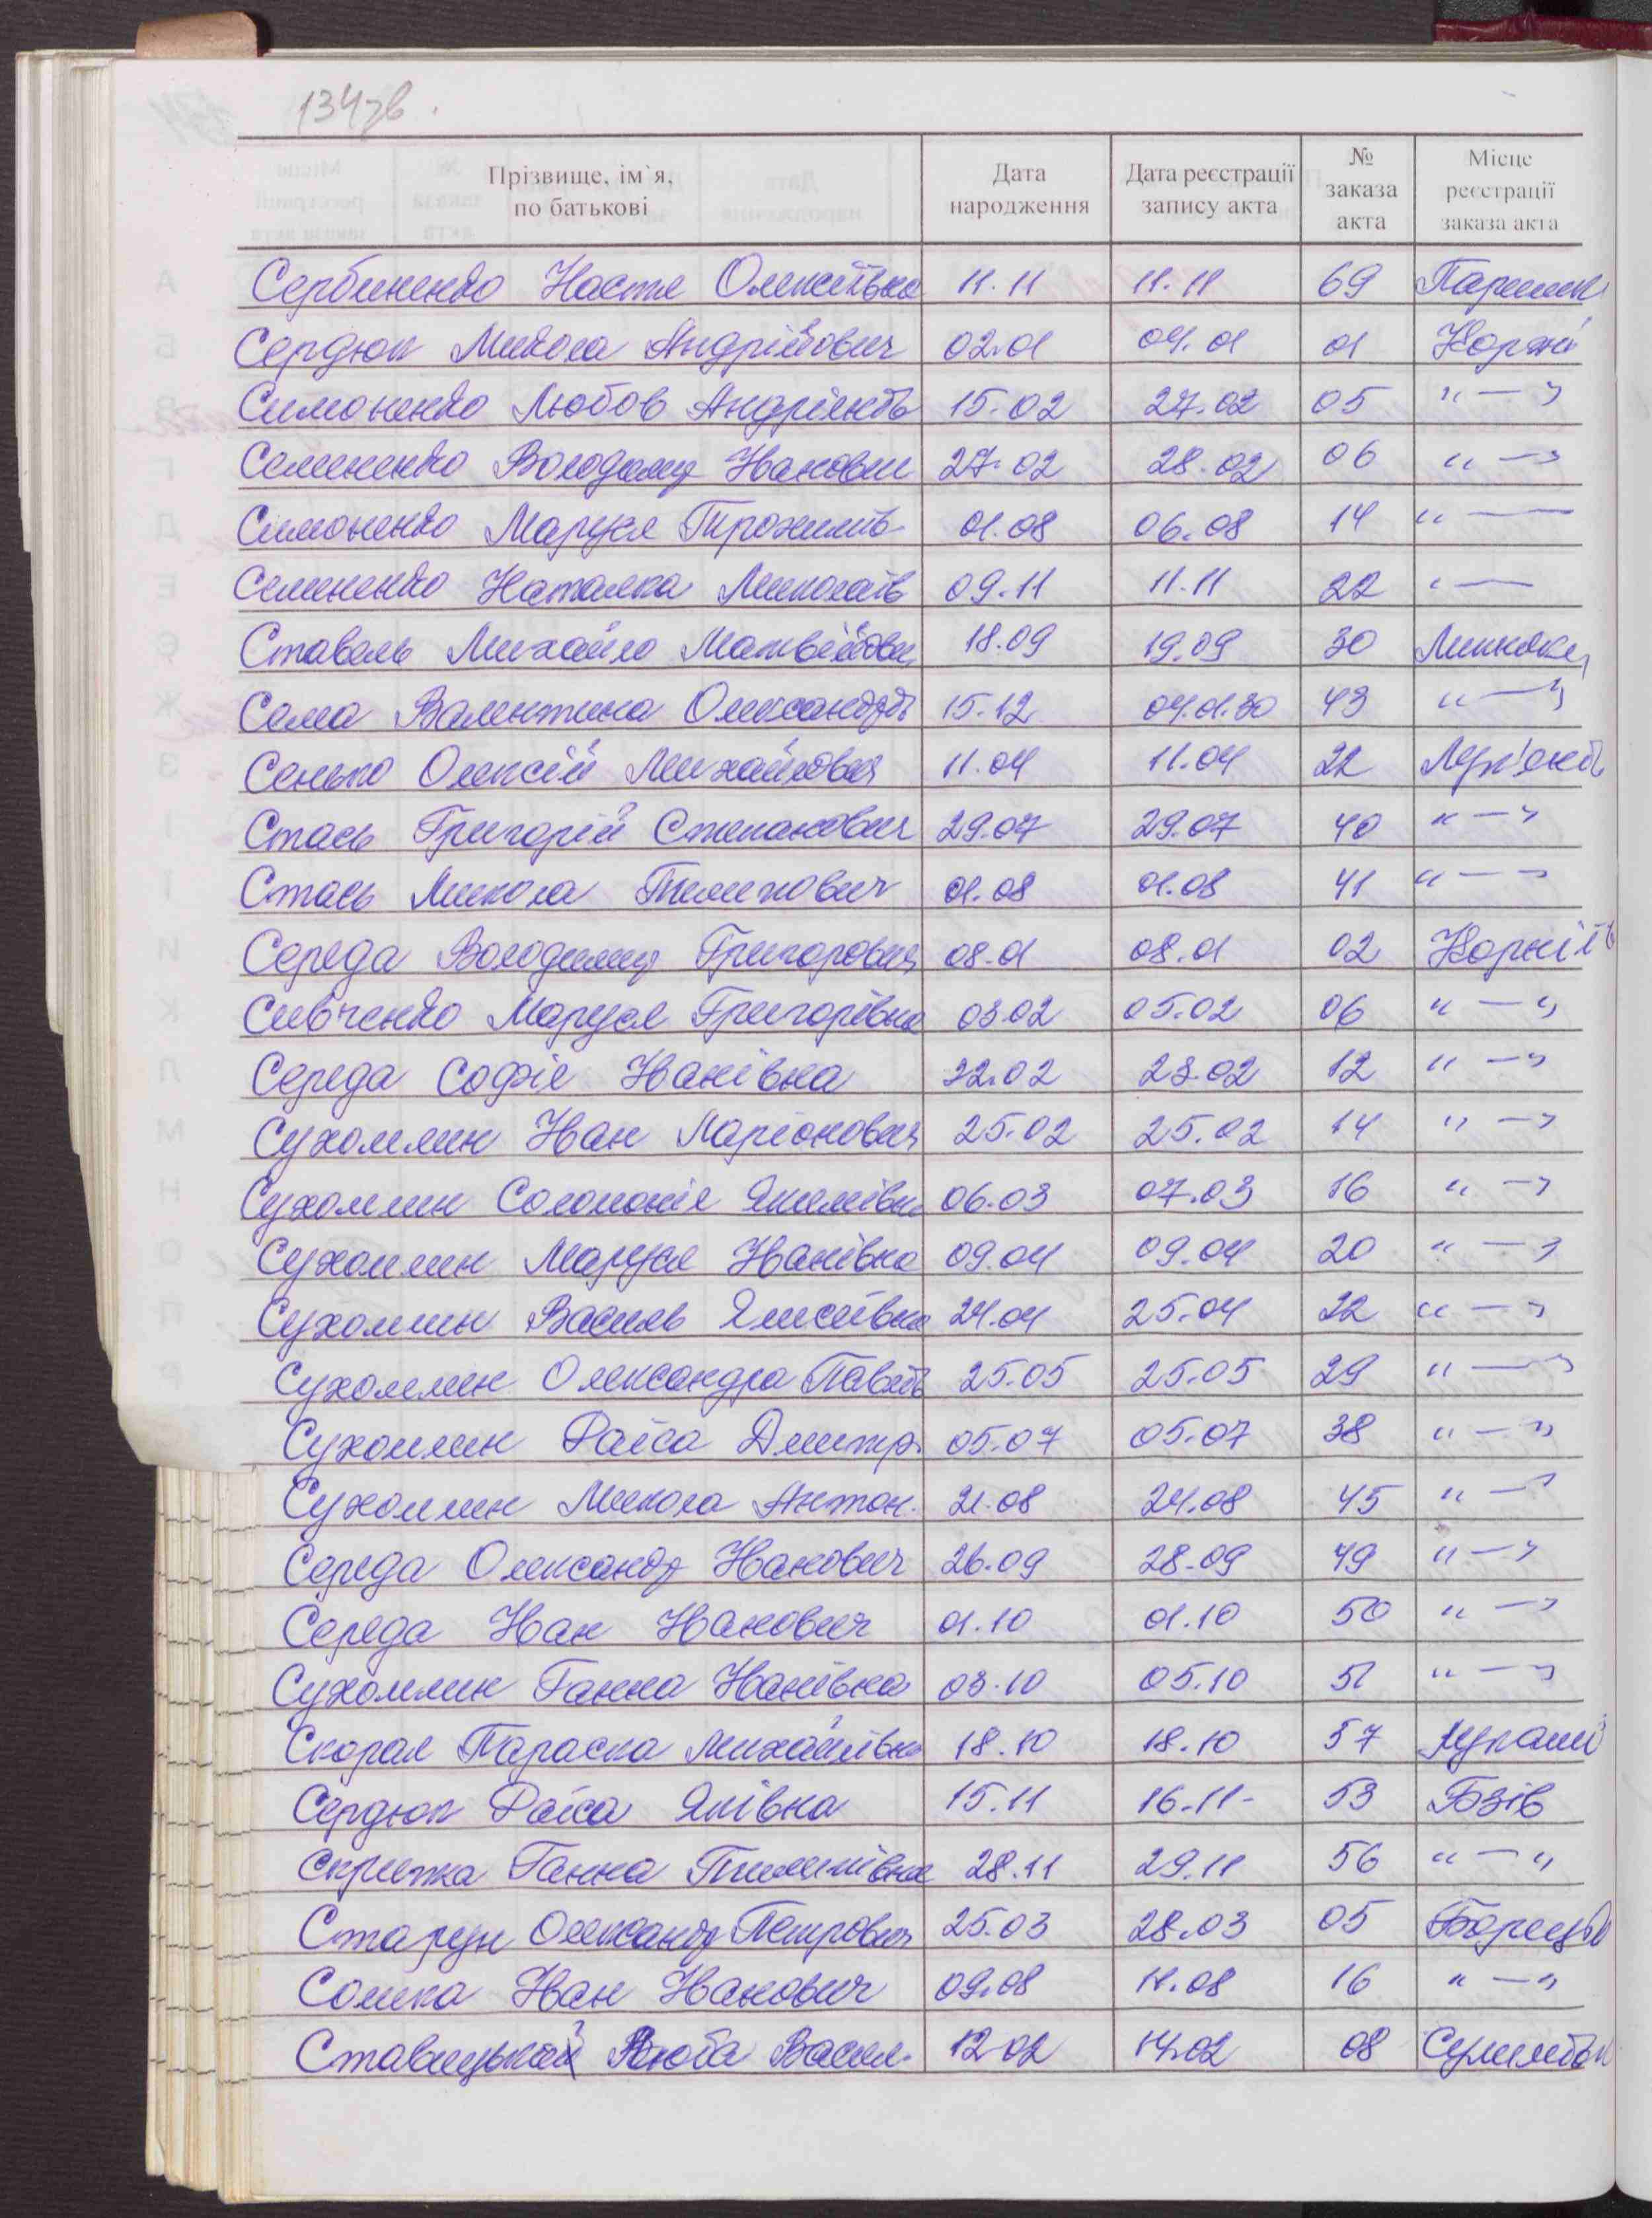 134зв.
Прізвище, ім`я, по батькові | Дата народження | Дата реєстрації запису акта | № заказа акта | Місце реєстрації заказа акта
Сербиненко Настя Олексіївна 11.11 11.11 69 Паришк
Сердюк Микола Андрійович 02.01 04.01 01 Коржі
Симоненко Любов Андріянів 15.02 27.02 05 "—"
Семененко Володимир Іванович 27.02 28.02 06 "—"
Симоненко Маруся Трохимів 01.08 06.08 14 "—
Семененко Наталка Миколаїв 09.11 11.11 22 "—
Ставель Михайло Матвійович 18.09 19.09 30
Сема Валентина Олександрів 15.12 04.01.30 43 "—"
Сенько Олексій Михайлович 11.04 11.04 22 Лук'янів
Стась Григорій Степанович 29.07 29.07 40 "—"
Стась Микола Тимихович 01.08 01.08 41 "—"
Середа Володимир Григорович 08.01 08.01 02 Корніїв
Сивченко Маруся Григорівна 03.02 05.02 06 "—"
Середа Софія Іванівна 22.02 23.02 12 "—"
Сухомлин Іван Ларіонович 25.02 25.02 14 "—"
Сухомлин Соломонія Якимівна 06.03 07.03 16 "—"
Сухомлин Маруся Іванівна 09.04 09.04 20 "—"
Сухомлин Василь Елисеївна 24.04 25.04 22 "—"
Сухомлин Олександра Павлів 25.05 25.05 29 "—"
Сухомлин Раїса Дмитр. 05.07 05.07 38 "—"
Сухомлин Микола Антон. 21.08 24.08 45 "—"
Середа Олександр Іванович 26.09 28.09 49 "—"
Середа Іван Іванович 01.10 01.10 50 "—"
Сухомлин Ганна Іванівна 03.10 05.10 51 "—"
Скорая Параска Михайлівна 18.10 18.10 57 Лукаші
Сердюк Раїса Яківна 15.11 16.11- 53 Бзів
Скрипка Ганна Пилипівна 28.11 29.11 56 "—"
Старун Олександр Петрович 25.03 28.03 05 Борщів
Сошка Іван Іванович 09.08 11.08 16 "—"
Ставицький Люба Васил. 12.02 14.02 08 Сулимівк